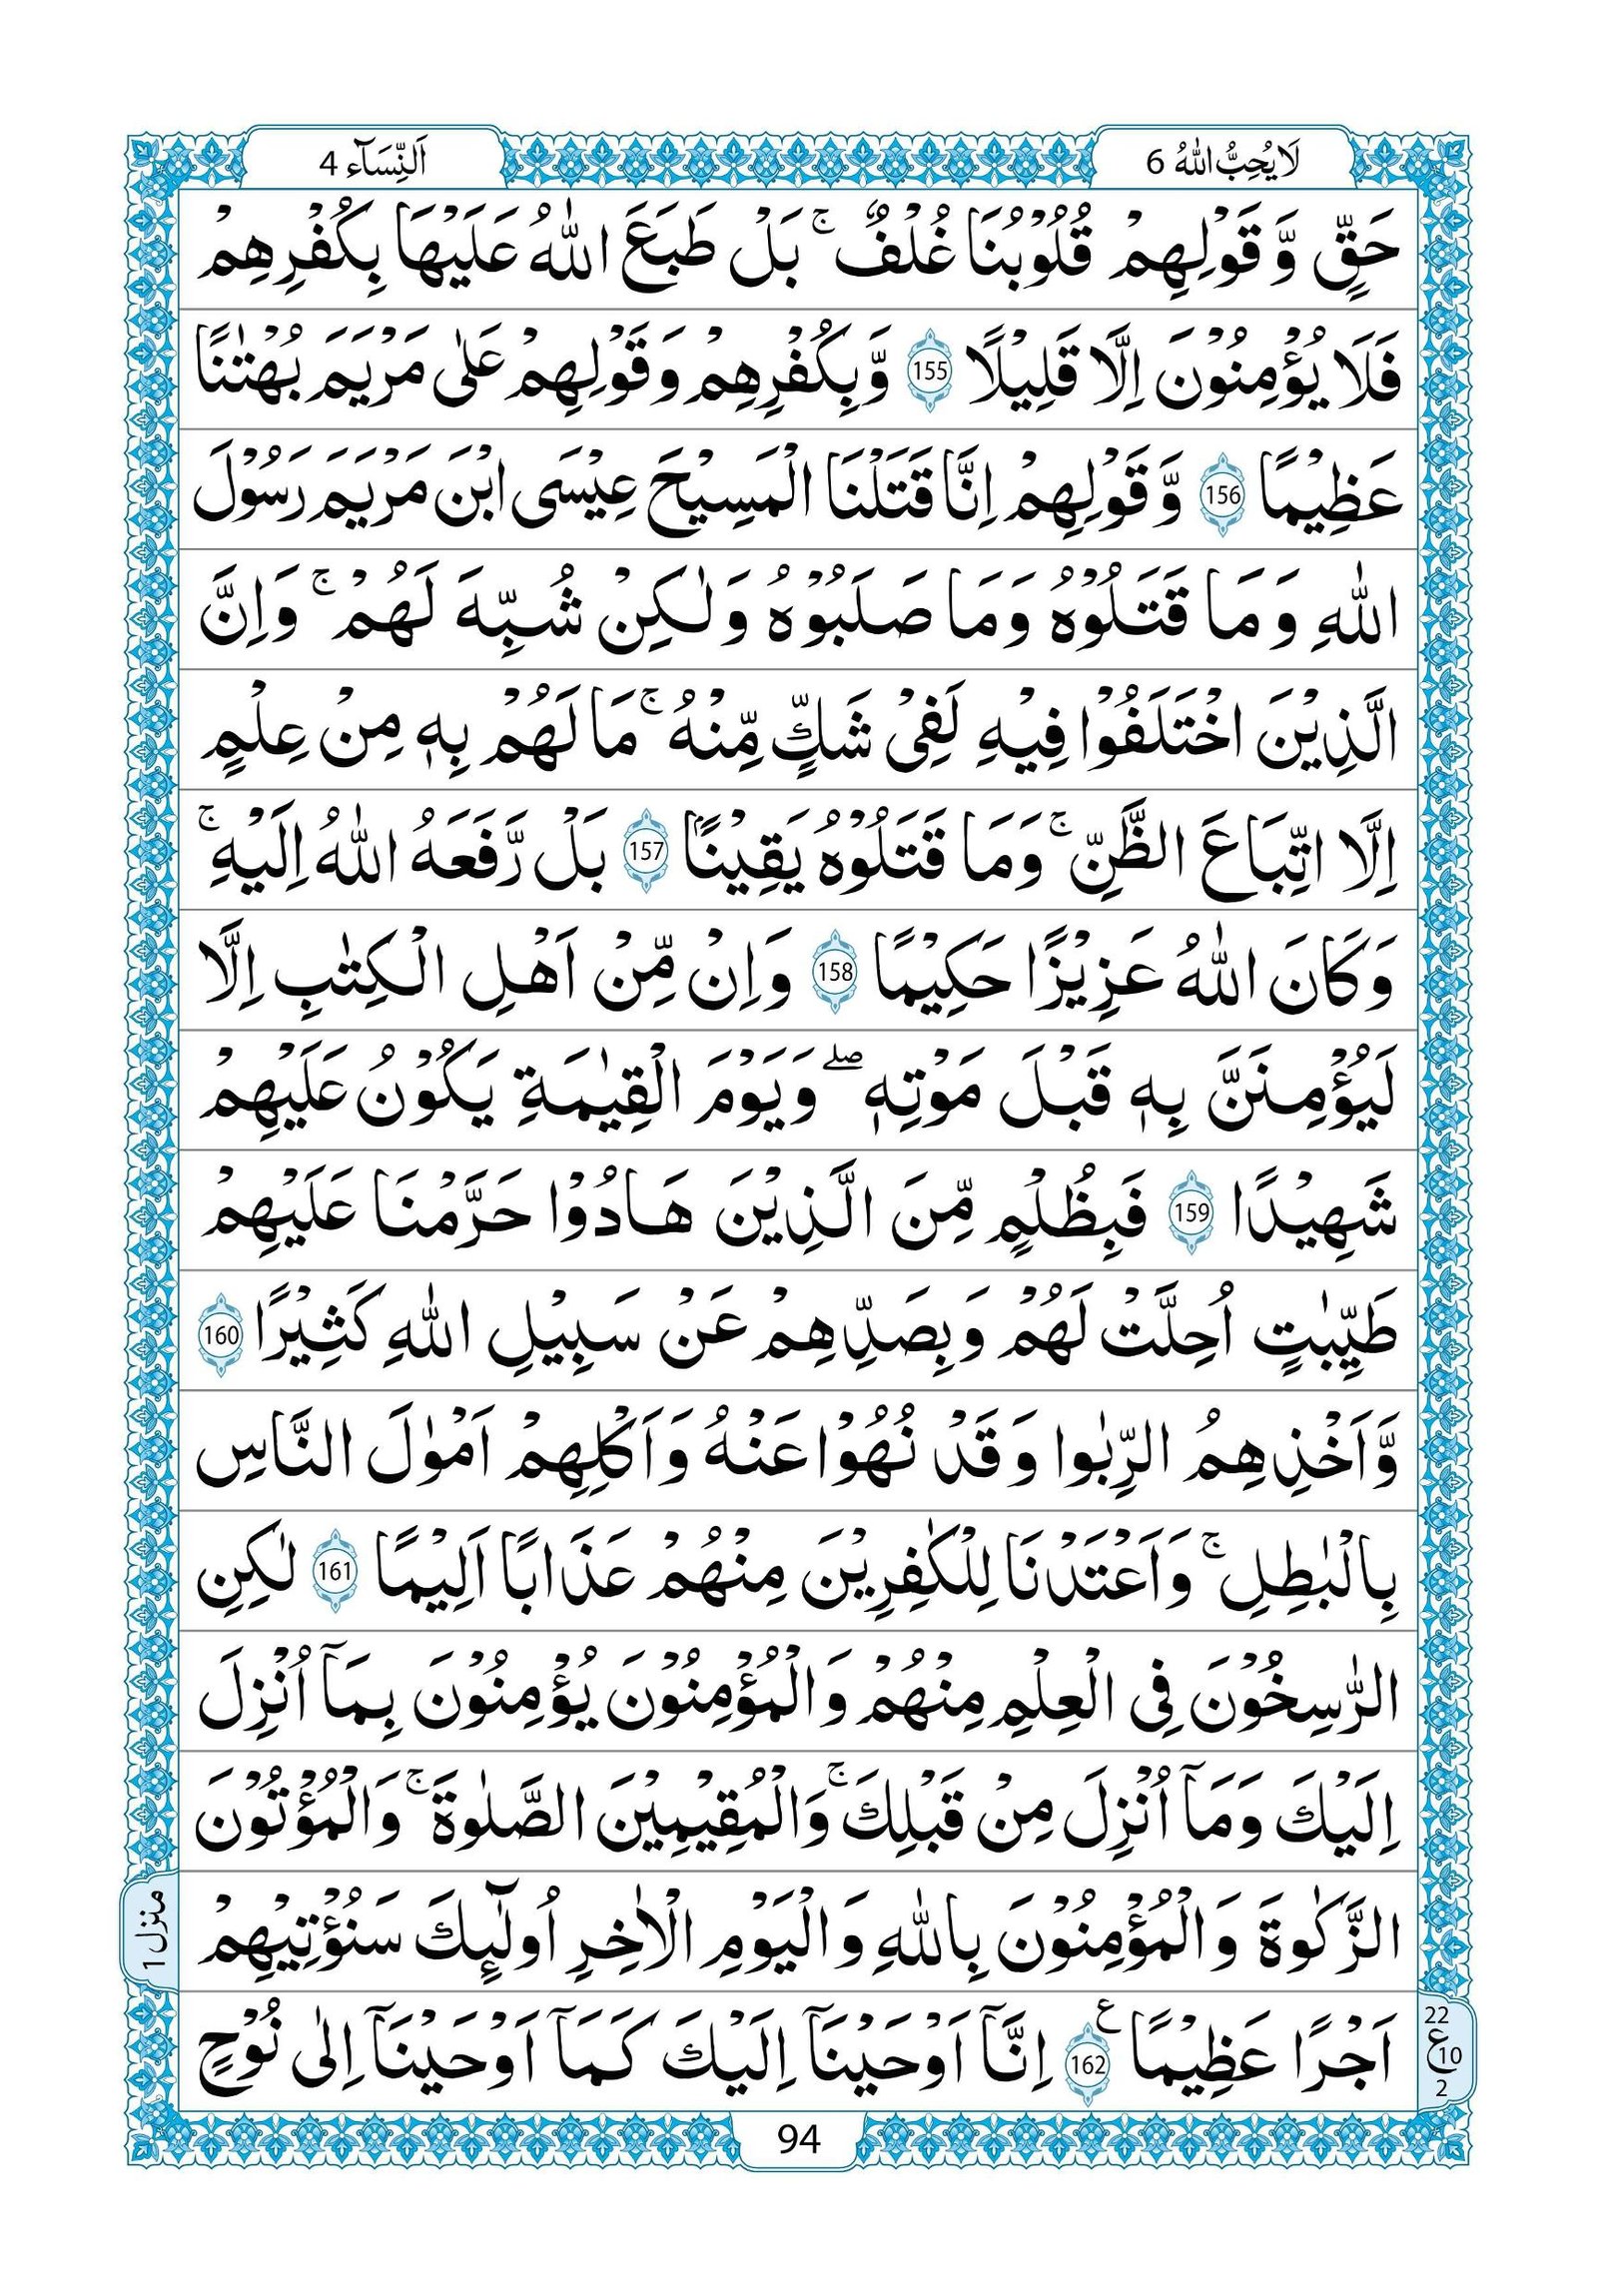 لَا يُحِبُّ اللّٰهُ 6
اَلنِّسَآء 4
حَقٍّ وَّ قَوْلِهِمْ قُلُوْبُنَا غُلْفٌ ۚ بَلْ طَبَعَ اللّٰهُ عَلَيْهَا بِكُفْرِهِمْ
فَلَا يُؤْمِنُوْنَ اِلَّا قَلِيْلًا 155 وَّبِكُفْرِهِمْ وَقَوْلِهِمْ عَلٰى مَرْيَمَ بُهْتٰنًا
عَظِيْمًا 156 وَّقَوْلِهِمْ اِنَّا قَتَلْنَا الْمَسِيْحَ عِيْسَى ابْنَ مَرْيَمَ رَسُوْلَ
اللّٰهِ وَمَا قَتَلُوْهُ وَمَا صَلَبُوْهُ وَلٰكِنْ شُبِّهَ لَهُمْ ۚ وَاِنَّ
الَّذِيْنَ اخْتَلَفُوْا فِيْهِ لَفِىْ شَكٍّ مِّنْهُ ۚ مَا لَهُمْ بِهٖ مِنْ عِلْمٍ
اِلَّا اتِّبَاعَ الظَّنِّ ۚ وَمَا قَتَلُوْهُ يَقِيْنًۢا 157 بَلْ رَّفَعَهُ اللّٰهُ اِلَيْهِ ۚ
وَكَانَ اللّٰهُ عَزِيْزًا حَكِيْمًا 158 وَاِنْ مِّنْ اَهْلِ الْكِتٰبِ اِلَّا
لَيُؤْمِنَنَّ بِهٖ قَبْلَ مَوْتِهٖ ۖ وَيَوْمَ الْقِيٰمَةِ يَكُوْنُ عَلَيْهِمْ
شَهِيْدًا 159 فَبِظُلْمٍ مِّنَ الَّذِيْنَ هَادُوْا حَرَّمْنَا عَلَيْهِمْ
طَيِّبٰتٍ اُحِلَّتْ لَهُمْ وَبِصَدِّهِمْ عَنْ سَبِيْلِ اللّٰهِ كَثِيْرًا 160
وَّاَخْذِهِمُ الرِّبٰوا وَقَدْ نُهُوْا عَنْهُ وَاَكْلِهِمْ اَمْوٰلَ النَّاسِ
بِالْبٰطِلِ ۚ وَاَعْتَدْنَا لِلْكٰفِرِيْنَ مِنْهُمْ عَذَابًا اَلِيْمًا 161 لٰكِنِ
الرّٰسِخُوْنَ فِى الْعِلْمِ مِنْهُمْ وَالْمُؤْمِنُوْنَ يُؤْمِنُوْنَ بِمَآ اُنْزِلَ
اِلَيْكَ وَمَآ اُنْزِلَ مِنْ قَبْلِكَ ۚ وَالْمُقِيْمِيْنَ الصَّلٰوةَ ۚ وَالْمُؤْتُوْنَ
الزَّكٰوةَ وَالْمُؤْمِنُوْنَ بِاللّٰهِ وَالْيَوْمِ الْاٰخِرِ اُولٰٓئِكَ سَنُؤْتِيْهِمْ
منزل 1
اَجْرًا عَظِيْمًا 162 ع اِنَّآ اَوْحَيْنَآ اِلَيْكَ كَمَآ اَوْحَيْنَآ اِلٰى نُوْحٍ
22
ع 10
2
94